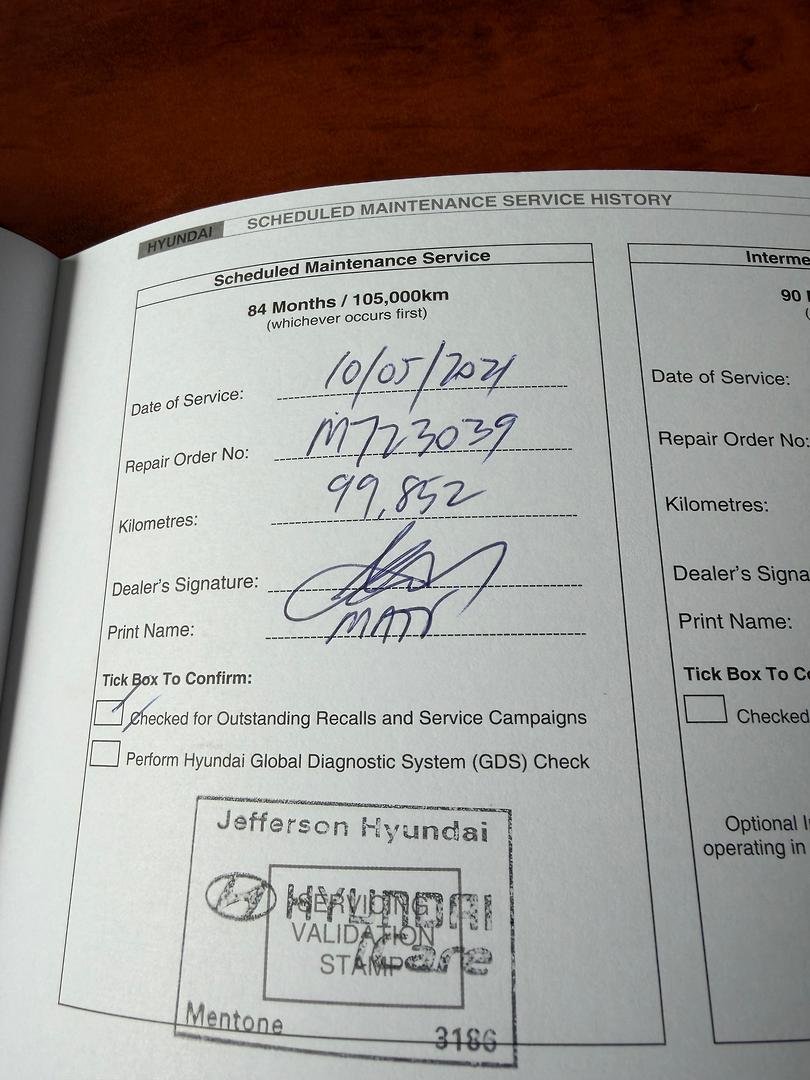 HYUNDAI SCHEDULED MAINTENANCE SERVICE HISTORY
Scheduled Maintenance Service
84 Months / 105,000km
(whichever occurs first)
Date of Service: 10/05/2021
Repair Order No: M723039
Kilometres: 99,852
Dealer's Signature:
Print Name: MATT
Tick Box To Confirm:
Checked for Outstanding Recalls and Service Campaigns
Perform Hyundai Global Diagnostic System (GDS) Check
Jefferson Hyundai
HYUNDAI
iCare
SERVICING
VALIDATION
STAMP
Mentone 3186
Interme
90
Date of Service:
Repair Order No:
Kilometres:
Dealer's Signa
Print Name:
Tick Box To Co
Checked
Optional
operating in